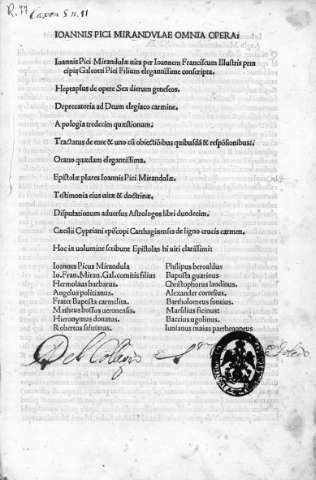 IOANNIS PICI MIRANDVLAE OMNIA OPERA:
Ioannis Pici Mirandulæ uita per Ioannem Franciscum Illustris prin
cipis Galeotti Pici Filium elegantissime conscripta.
Heptaplus de opere Sex dierum geneseos.
Deprecatoria ad Deum elegiaco carmine.
Apologia tredecim quæstionum.
Tractatus de ente & uno cū obiectiōibus quibusdā & respōsionibus:
Oratio quædam elegantissima.
Epistolæ plures Ioannis Pici Mirandulæ.
Testimonia eius uitæ & doctrinæ.
Disputationum aduersus Astrologos libri duodecim.
Cæcilii Cypriani episcopi Carthaginensis de ligno crucis carmen.
Hoc in uolumine scribunt Epistolas hi uiri clarissimi:
Ioannes Picus Mirandula
Io. Fran. Miran. Galeotti comitis filius
Hermolaus barbarus.
Angelus politianus.
Frater Baptista carmelita.
Matheus bossus ueronensis.
Hieronymus donatus.
Robertus saluiatus.
Philippus beroaldus
Baptista guarinus
Christophorus landinus.
Alexander cortesius.
Bartholomeus fontius.
Marsilius ficinus:
Baccius ugolinus.
Iunianus maius parthenopeus
Del Collegio